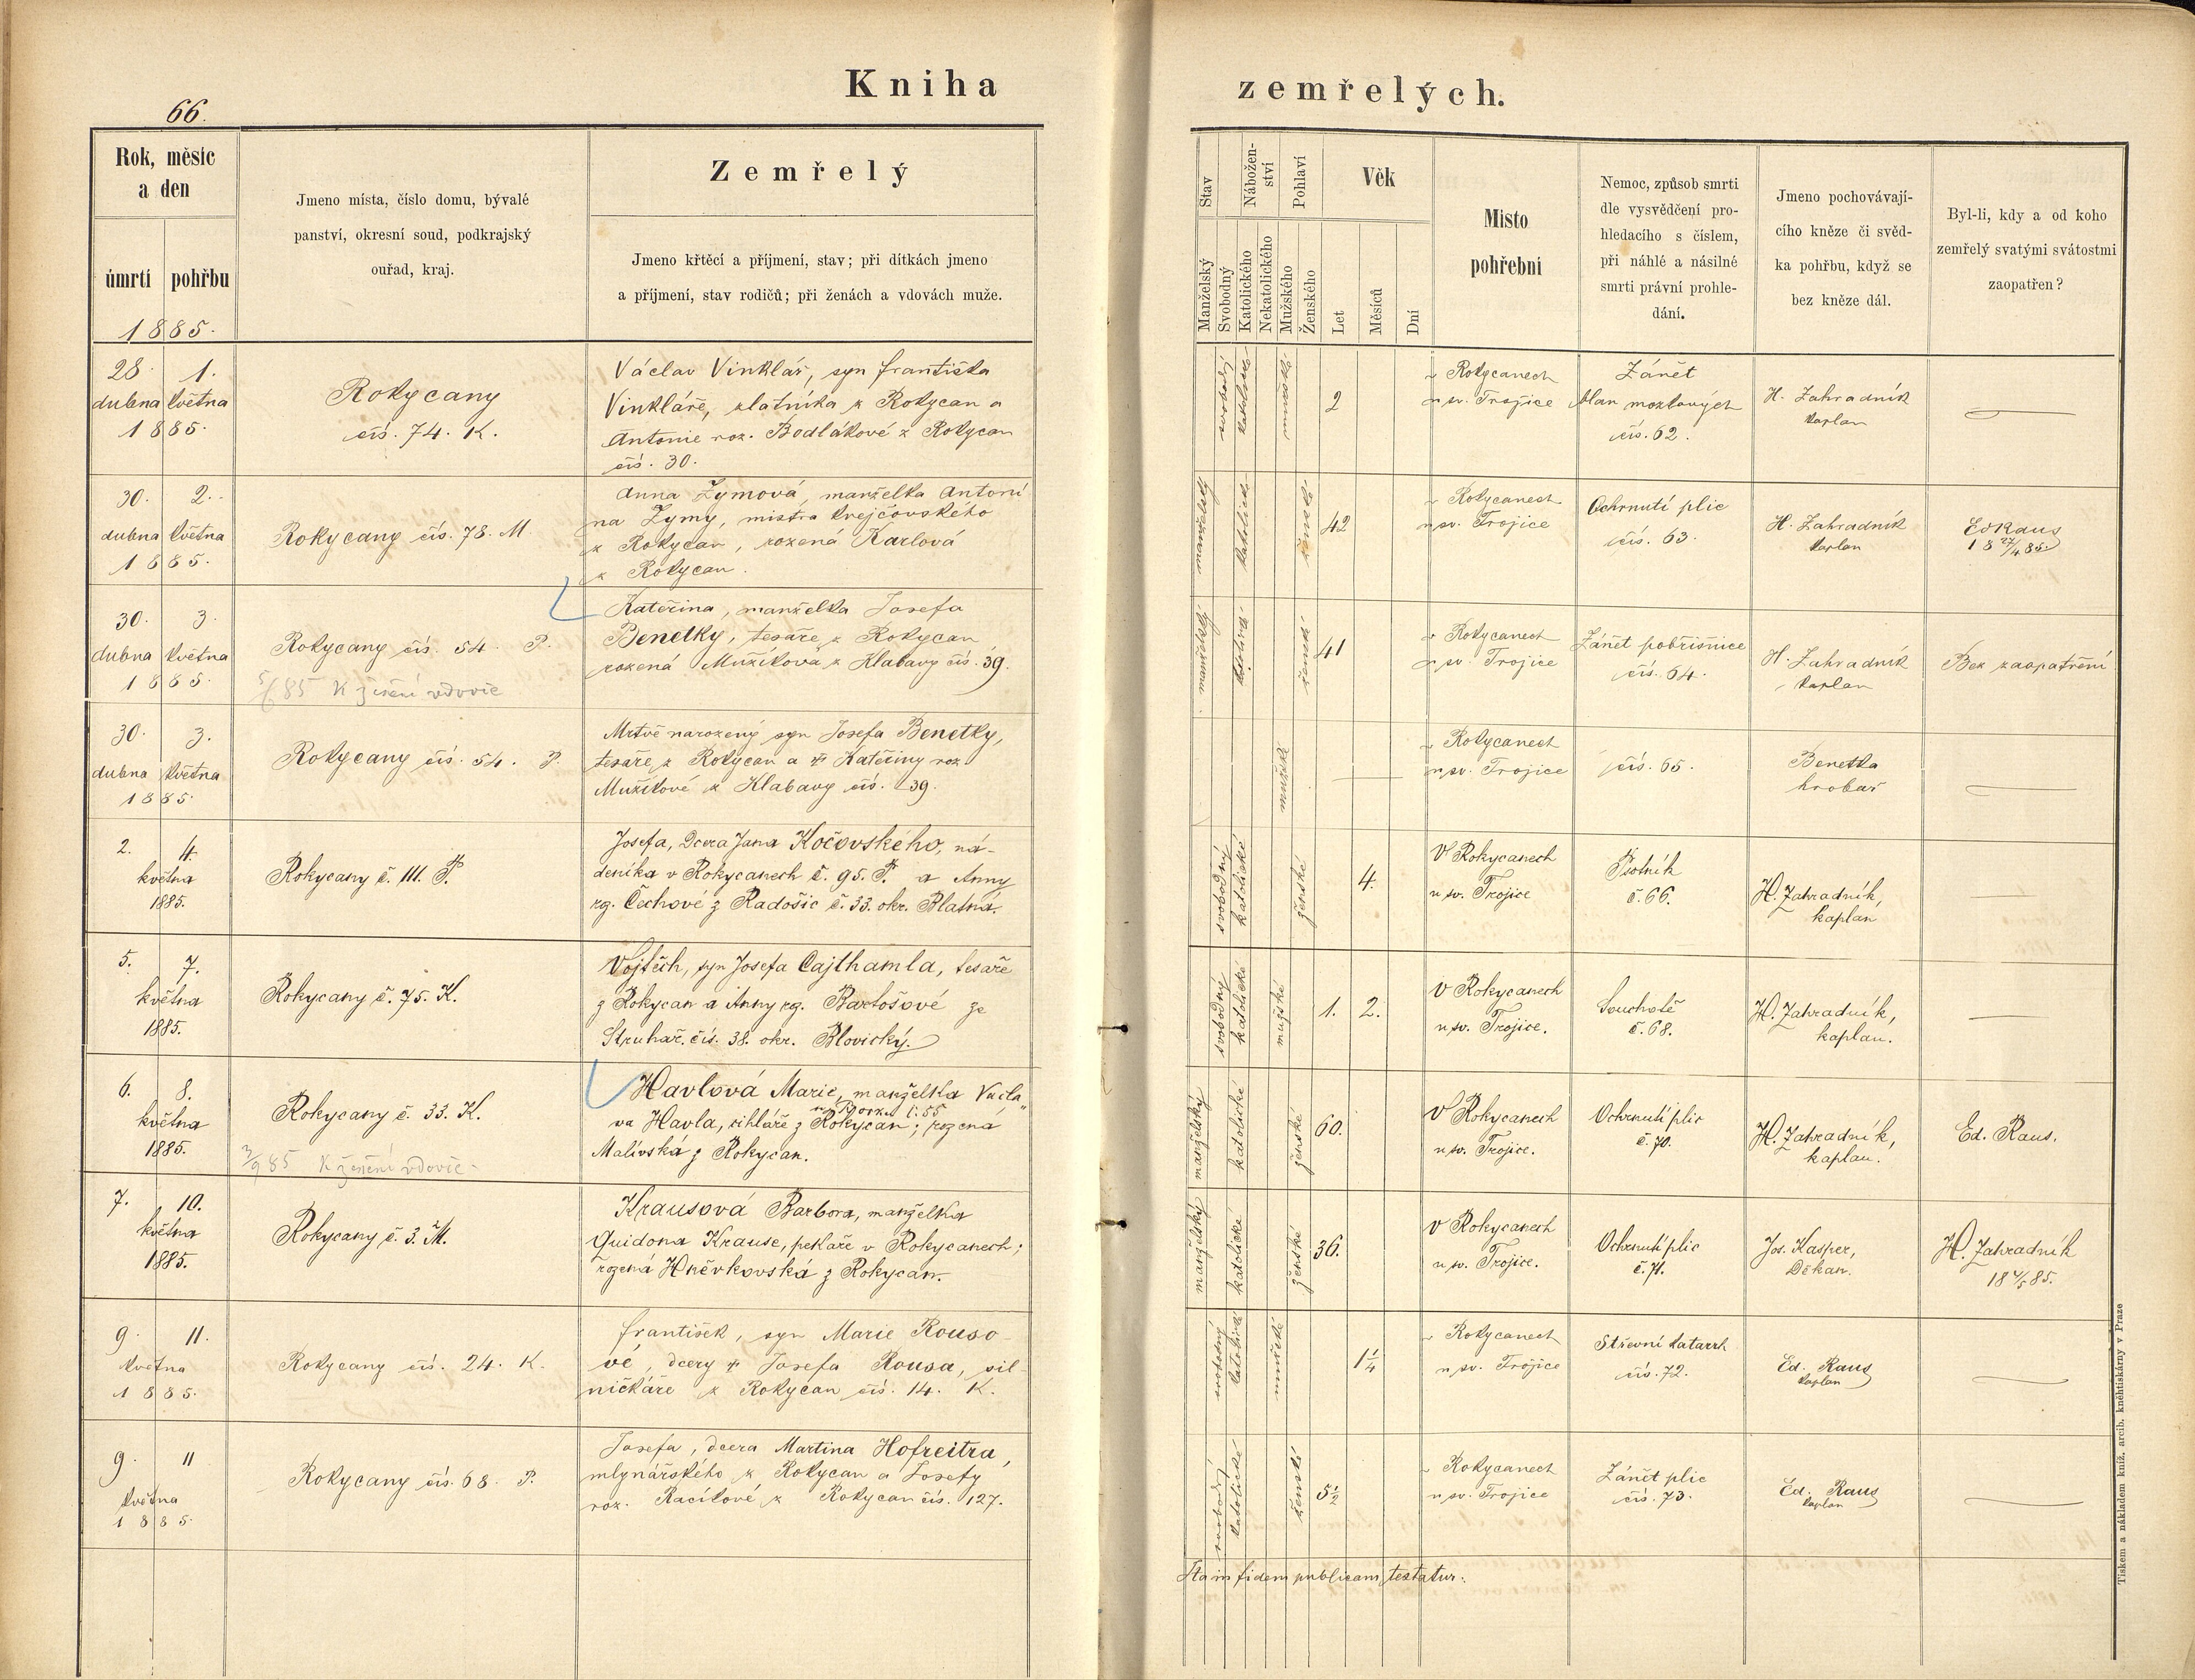 Kniha zemřelých.
66.
Rok, měsíc
a den
úmrtí
pohřbu
1885.
Jmeno místa, číslo domu, bývalé
panství, okresní soud, podkrajský
ouřad, kraj.
Zemřelý
Jmeno křtěcí a příjmení, stav; při dítkách jmeno
a příjmení, stav rodičů; při ženách a vdovách muže.
Stav
Manželský
Svobodný
Nábožen-
ství
Katolického
Nekatolického
Pohlaví
Mužského
Ženského
Věk
Let
Měsíců
Dní
Místo
pohřební
Nemoc, způsob smrti
dle vysvědčení pro-
hledacího s číslem,
při náhlé a násilné
smrti právní prohle-
dání.
Jmeno pochovávají-
cího kněze či svěd-
ka pohřbu, když se
bez kněze dál.
Byl-li, kdy a od koho
zemřelý svatými svátostmi
zaopatřen?
28. 1.
dubna května
1885.
Rokycany
čís. 74. K.
Václav Vinklář, syn Františka
Vinkláře, zlatníka z Rokycan a
Antonie roz. Bodlákové z Rokycan
čís. 30.
svobodný
katolické
mužské
2
v Rokycanech
u sv. Trojice
Zánět
blan mozkových
čís. 62.
H. Zahradník
kaplan
30. 2.
dubna května
1885.
Rokycany čís. 78. M
Anna Zymová, manželka Antoní
na Zymy, mistra krejčovského
z Rokycan, rozená Karlová
z Rokycan.
katolické
ženské
42
v Rokycanech
u sv. Trojice
Ochrnutí plic
čís. 63.
H. Zahradník
kaplan
Ed Raus
18 27/4 85.
30. 3.
dubna května
1885.
Rokycany čís. 54. P.
5/6 85 K ženění vdovce
Kateřina, manželka Josefa
Benetky, tesaře z Rokycan
rozená Mužíková z Klabavy čís. 39.
katolické
ženské
41
v Rokycanech
u sv. Trojice
Zánět pobřišnice
čís. 64.
H. Zahradník
kaplan
Bez zaopatření
30. 3.
dubna května
1885.
Rokycany čís. 54. P.
Mrtvě narozený syn Josefa Benetky,
tesaře z Rokycan a † Kateřiny roz
Mužíkové z Klabavy čís. 39.
mužské
v Rokycanech
u sv. Trojice
čís. 65.
Benetka
hrobař
2. 4.
května
1885.
Rokycany č. 111. P.
Josefa, dcera Jana Kočovského, ná-
deníka v Rokycanech č. 95. P. a Anny
rz. Čechové z Radošic č. 33. okr. Blatná.
svobodný
katolické
ženské
4.
V Rokycanech
u sv. Trojice
Psotník
č. 66.
H. Zahradník,
kaplan
5. 7.
května
1885.
Rokycany č. 75. K.
Vojtěch, syn Josefa Cajthamla, tesaře
z Rokycan a Anny rz. Bartošové ze
Struhař. čís. 38. okr. Blovický.
svobodný
katolické
mužské
1. 2.
V Rokycanech
u sv. Trojice.
Souchotě
č. 68.
H. Zahradník,
kaplan.
6. 8.
května
1885.
Rokycany č. 33. K.
3/9 85 K ženění vdovce
Havlová Marie, manželka Václa„
va Havla, cihláře z Rokycan; rozená
Malívská z Rokycan.
manželský
katolické
ženské
60.
V Rokycanech
u sv. Trojice.
Ochrnutí plic
č. 70.
H. Zahradník,
kaplan.
Ed. Raus.
7. 10.
května
1885.
Rokycany č. 3. M.
Krausová Barbora, manželka
Quidona Krause, pekaře v Rokycanech;
rozená Hněvkovská z Rokycan.
manželský
katolické
ženské
36.
v Rokycanech
u sv. Trojice.
Ochrnutí plic
č. 71.
Jos. Kasper,
Děkan.
H. Zahradník
18 4/5 85.
9. 11.
května
1885.
Rokycany čís. 24. K.
František, syn Marie Rouso-
vé, dcery † Josefa Rousa, sil-
ničkáře z Rokycan čís. 14. K.
svobodný
katolické
mužské
1 1/4
v Rokycanech
u sv. Trojice
Střevní katarrh
čís. 72.
Ed. Raus
kaplan
9. 11
května
1885.
Rokycany čís. 68. P.
Josefa, dcera Martina Hofreitra,
mlynářského z Rokycan a Josefy
roz. Racíkové z Rokycan čís. 127.
svobodný
katolické
ženské
5 1/2
v Rokycanech
u sv. Trojice
Zánět plic
čís. 73.
Ed. Raus
kaplan
Ita in fidem publicam testatur:
Tiskem a nákladem kníž. arcib. kněhtiskárny v Praze